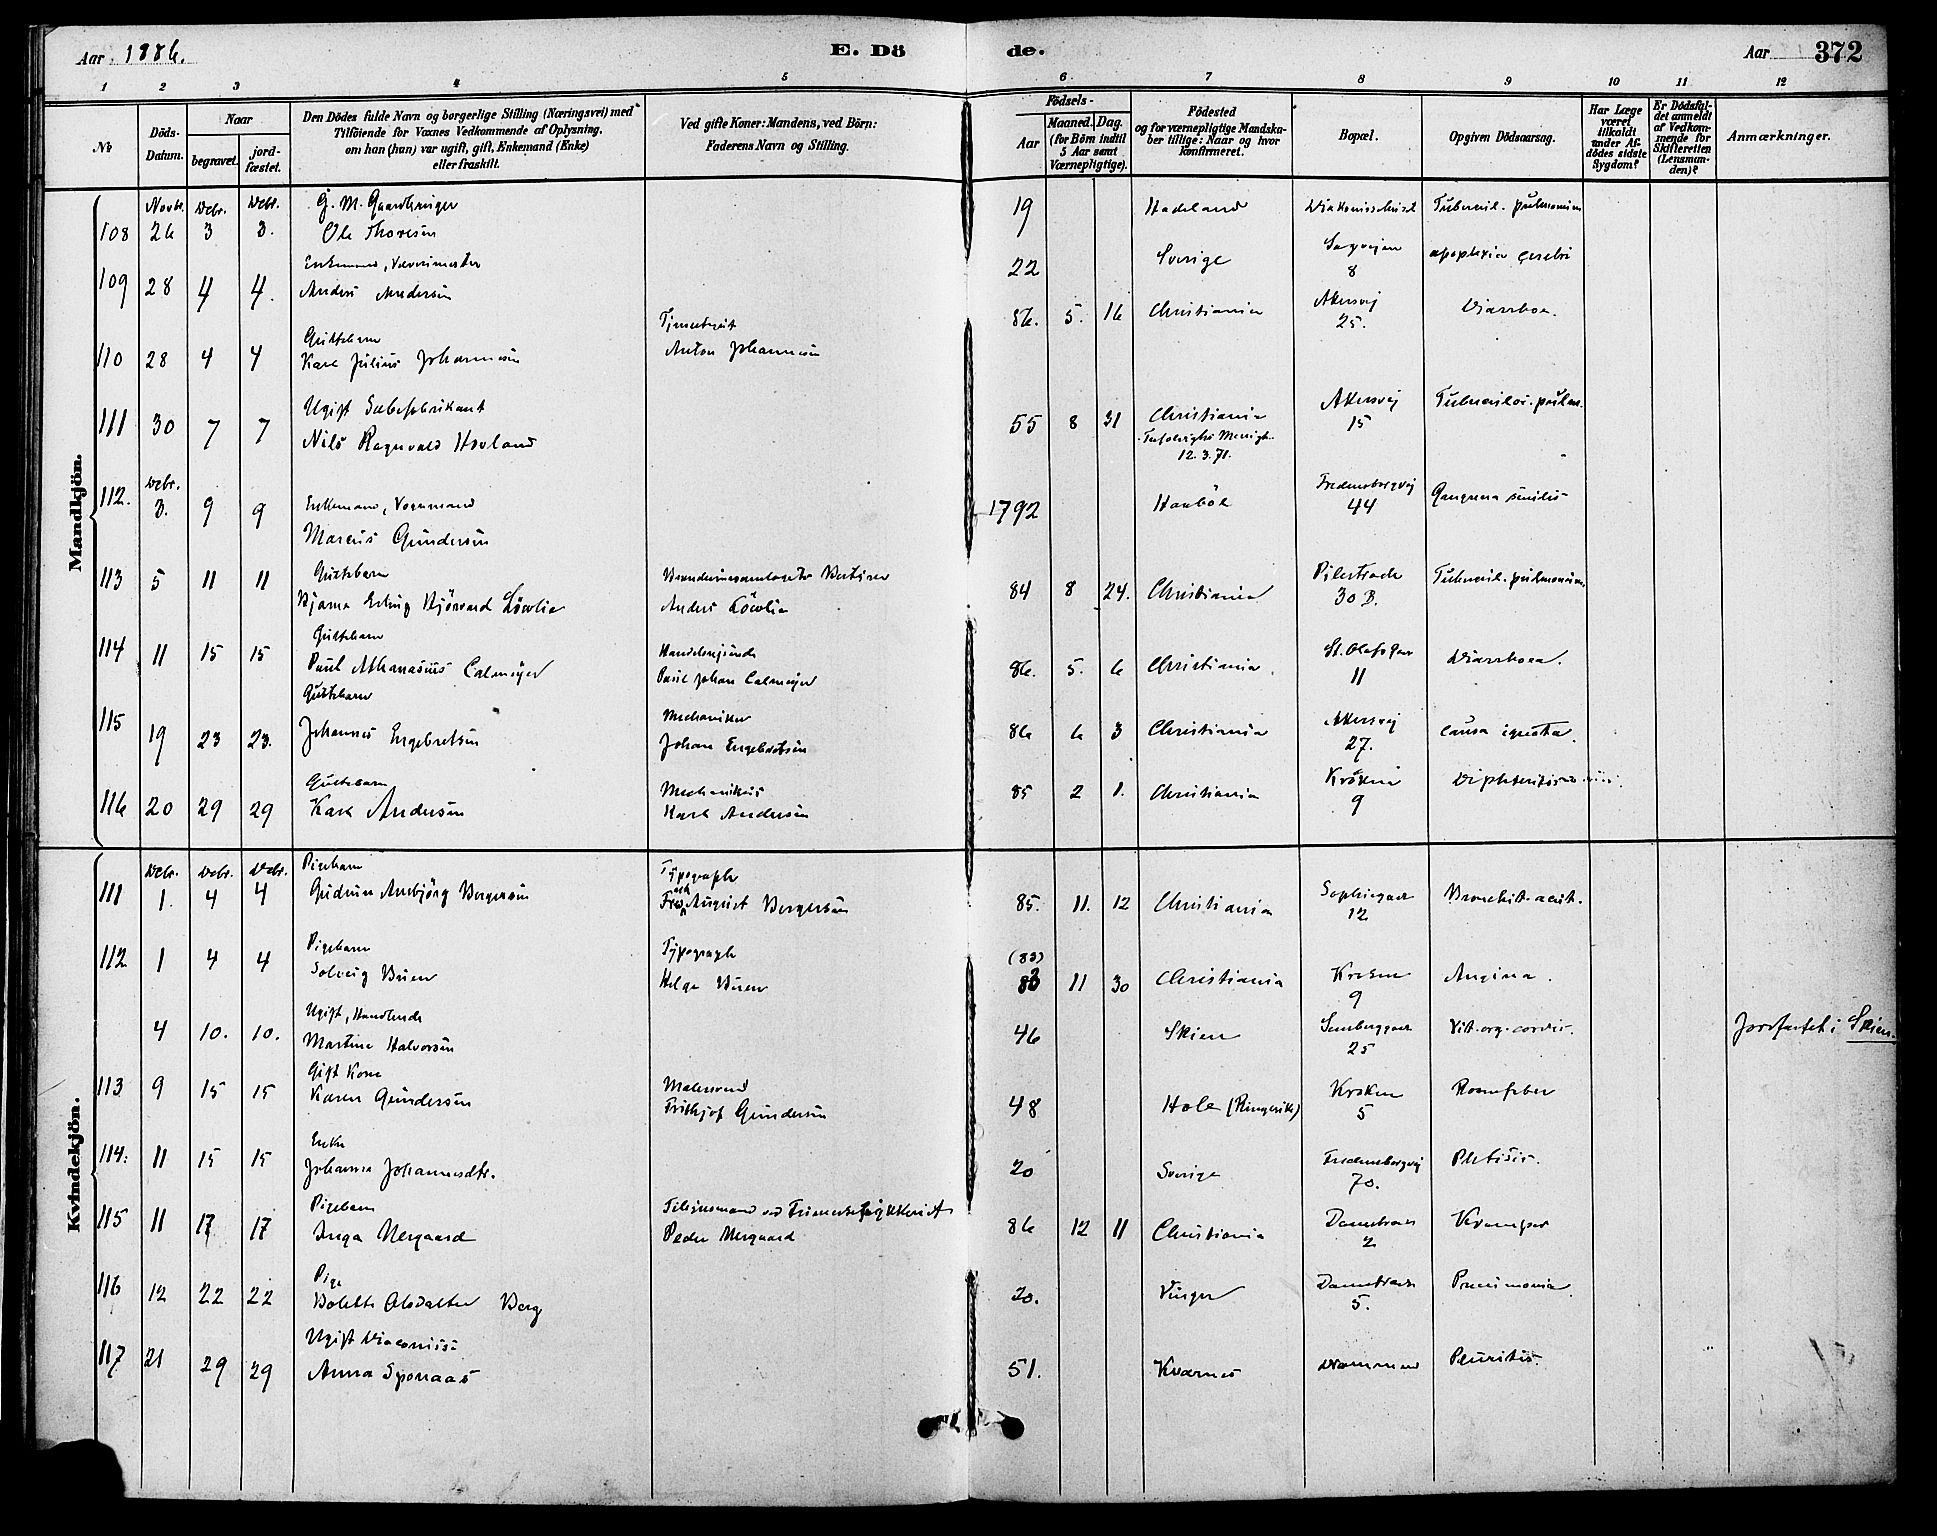 Aar 1886. E. Döde. Aar 372
1 2 3 4 5 6 7 8 9 10 11 12
No
Döds-Datum.
Naar
begravet. jordfæstet.
Den Dödes fulde Navn og borgerlige Stilling (Næringsvei) med
Tilföiende for Voxnes Vedkommende af Oplysning.
om han (hun) var ugift, gift, Enkemand (Enke)
eller fraskilt.
Ved gifte Koner: Mandens, ved Börn:
Faderens Navn og Stilling.
Födsels-
Aar
Maaned. Dag.
(for Börn indtil
5 Aar samt
Værnepligtige).
Födested
og for værnepligtige Mandska-
ber tillige: Naar og hvor
Konfirmeret.
Bopæl.
Opgiven Dödsaarsag.
Har Læge
været
tilkaldt
under Af-
dödes sidste
Sygdom?
Er Dödsfal-
det anmeldt
af Vedkom-
mende for
Skifteretten
(Lensman-
den)?
Anmærkninger.
Mandkjön.
Novbr. Debr. Debr. G. M. 19 Hadeland Tubercul. pulmonum
108 26 3 3. Ole Thoresen
Enkemand, 22 Sverige 8 apoplexia cerebri
109 28 4 4. Anders Andersen
Guttebarn 86. 5. 16 Christiania Akersvej 25. Diarrhoea.
110 28 4 4 Karl Julius Johannesen Anton Johannesen
Ugift Sæbefabrikant
111 30 7 7 Nils Ragnvald Hovland 55 8 31 Christiania Akersvej 15 Tuberculos. pulm.
12.3.71.
Debr.
112. 3. 9 9 Enkemand, 1792 Haabøl Fredensborgvej 44 Gangræna senilis
Marcus Gundersen
113 5 11 11 Guttebarn
Bjarne Erling Bjørvard Løvlie Anders Løvlie 84 8 24. Christiania Pilestræde 30 B. Tubercul. pulmonum.
114 11 15 15 Guttebarn
Paul Athanasius Calmeyer Paul Johan Calmeyer 86. 5. 6 Christiania. St. Olafs Gad 11 Diarrhoea.
Guttebarn
115 19 23 23. Johannes Engebretsen Mechaniker
Johan Engebretsen 86 6 3 Christiania Akersvej 27. causa ignota.
Guttebarn
116 20 29 29 Karl Andersen Mechanikus
Karl Andersen 85 2 1. Christiania Kroken 9 Diphteritis
Kvindekjön.
Debr. Debr. Debr. Pigebarn Typograph
111 1. 4 4 Gudrun Anbjørg Bergersen August Bergersen 85. 11. 12 Christiania Sophiegad 12 Bronchit. acut.
112 1 4 4 Pigebarn
Solveig Buen Typograph
Helge Buen (83)
83 11 30 Christiania Kroken 9 Angina.
4 10. 10. Ugift, Handlende
Martine Halvorsen 46 Skien 25 Vit. org. cordis. Jordfæstet i Skien.
113 9 15 15 Gift Kone
Karen Gundersen Malersvend
Frithjof Gundersen 48 Hole (Ringerike) Kroken 5 Rosenfeber
114. 11 15 15 Enke
Johanne Johannesdtr. 20 Sverige Fredensborgvej 70. Phtisis.
115 11 17 17 Pigebarn
Inga Nergaard Peder Nergaard 86 12 11 Christiania Damstræde 2 Kramper
116 12 22 22 Pige
Bolette Alvdatter Berg 20. Vinger Damstræde 5. Pneumonia.
117 21 29 29 Ugift Diaconisse
Anna Sponaas 51. Kværnes Pleuritis.